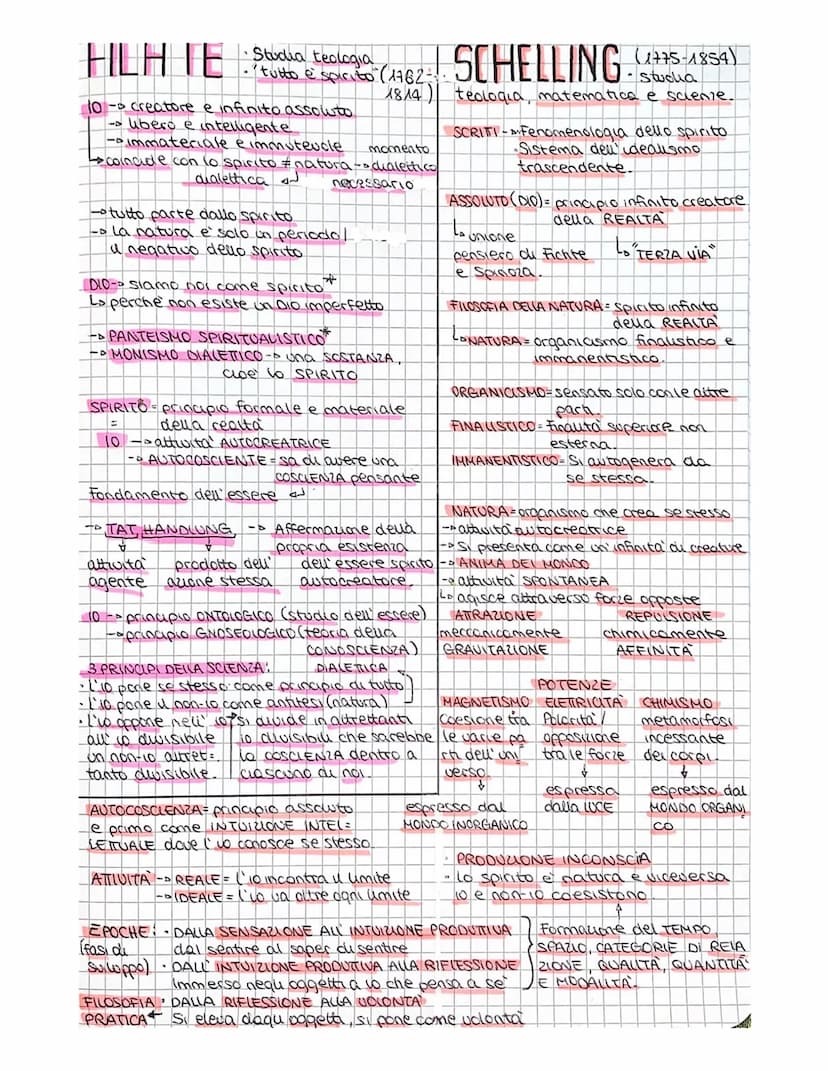 FICHTE
· Studia teologia
· "tutto è spirito" (1762-
1814)
IO -> creatore e infinito assoluto
-> libero e intelligente
-> immateriale e immutevole momento
-> coincide con lo spirito ≠ natura -> dialettico
dialettica necessario
-> tutto parte dallo spirito
-> la natura è solo un periodo/
il negativo dello spirito
DIO -> siamo noi come spirito*
-> perché non esiste un DIO imperfetto
-> PANTEISMO SPIRITUALISTICO*
-> MONISMO DIALETTICO -> una SOSTANZA,
cioè lo SPIRITO
SPIRITO = principio formale e materiale
= della realtà
IO -> attività AUTOCREATRICE
-> AUTOCOSCIENTE = sa di avere una
COSCIENZA pensante
fondamento dell'essere
-> TAT HANDLUNG -> Affermazione della
propria esistenza
attività prodotto dell' dell'essere spirito
agente azione stessa autocreatore.
IO -> principio ONTOLOGICO (studio dell'essere)
-> principio GNOSEOLOGICO (teoria della
CONOSCIENZA)
3 PRINCIPI DELLA SCIENZA: DIALETICA
· L'io pone se stesso come principio di tutto
· L'io pone il non-io come antitesi (natura)
· L'io oppone nell' io si divide in altrettanti
all'io divisibile io divisibili che sarebbe
un non-io altret= la COSCIENZA dentro a
tanto divisibile. ciascuno di noi.
SCHELLING (1775-1854)
· Studia
teologia, matematica e scienze.
SCRITTI -> · Fenomenologia dello spirito
· Sistema dell'idealismo
trascendente.
ASSOLUTO (DIO) = principio infinito creatore
della REALTÀ
-> unione -> "TERZA VIA"
pensiero di Fichte
e Spinoza.
FILOSOFIA DELLA NATURA = spirito infinito
della REALTÀ
-> NATURA = organicismo finalistico e
immanentistico.
ORGANICISMO = sensato solo con le altre
parti.
FINALISTICO = Finalità superiore non
esterna.
IMMANENTISTICO = Si autogenera da
se stessa.
NATURA = organismo che crea se stesso
-> attività autocreatrice
-> Si presenta come un'infinità di creature
-> ANIMA DEL MONDO
-> attività SPONTANEA
-> agisce attraverso forze opposte
ATTRAZIONE REPULSIONE
meccanicamente chimicamente
GRAVITAZIONE AFFINITÀ
POTENZE
MAGNETISMO ELETTRICITÀ CHIMISMO
Coesione tra Polarità/ metamorfosi
le varie pa opposizione incessante
rti dell'uni tra le forze dei corpi.
verso.
espressa espresso dal
dalla LUCE MONDO ORGANI
CO
espresso dal
MONDO INORGANICO
AUTOCOSCIENZA = principio assoluto
e primo come INTUIZIONE INTEL=
LETTUALE dove l'io conosce se stesso
· PRODUZIONE INCONSCIA
· lo spirito è natura e viceversa
io e non-io coesistono.
ATTIVITÀ -> REALE = l'io incontra il limite
-> IDEALE = l'io va oltre ogni limite
EPOCHE: · DALLA SENSAZIONE ALL'INTUIZIONE PRODUTTIVA
(fasi di dal sentire al saper di sentire
sviluppo) · DALL'INTUIZIONE PRODUTTIVA ALLA RIFLESSIONE
Immerso negli oggetti a io che pensa a sé
Formazione del TEMPO,
SPAZIO, CATEGORIE DI RELA
ZIONE, QUALITÀ, QUANTITÀ
E MODALITÀ.
FILOSOFIA · DALLA RIFLESSIONE ALLA VOLONTÀ
PRATICA Si eleva dagli oggetti, si pone come volontà